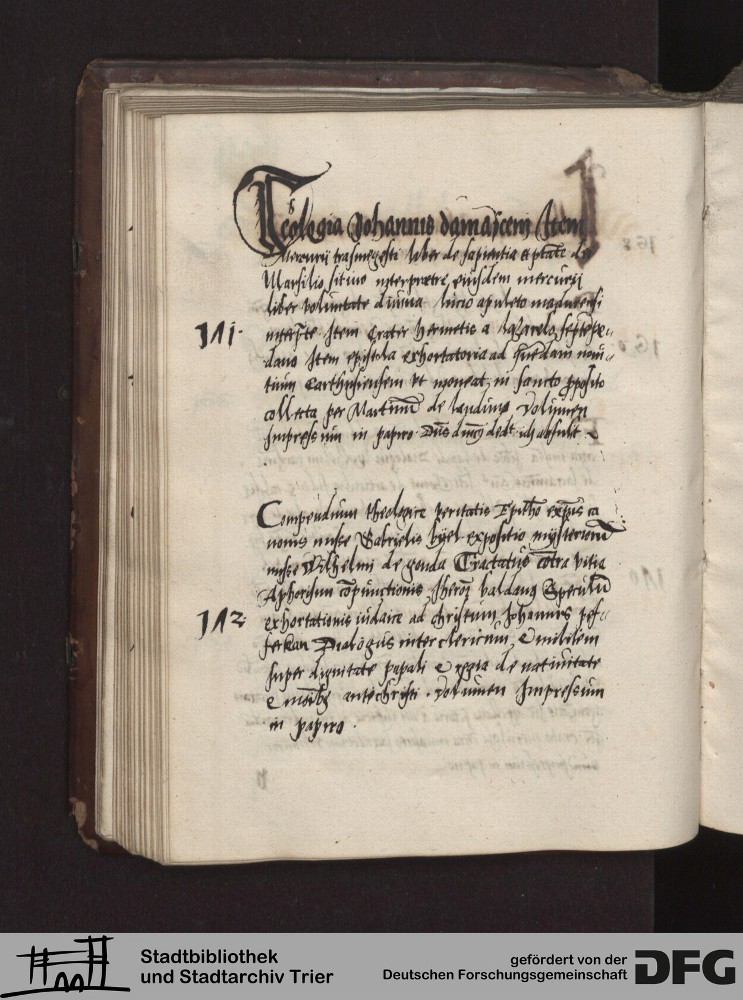 Teologia Johannis damasceni Item
Mercurii trismegisti liber de sapientia et ptāte dei
Marsilio ficino interprætre, eiusdem mercurij
liber voluntate diuina lucio apuleio madurensi
111. interp̄te Item Crater hermetis a lazarelo septēpe-
dano Item epistola exhortatoria ad quendam noui-
tium Carthusiensem vt moneat, in sancto p̄posito
collecta per Martinū de laudino volumen
Impressum in papiro
Compendium theologice veritatis
nonis misse Gabrielis byel expositio mysteriorū
misse Wilhelmi de gouda Tractatus cōtra vitia
Aphorisun cōpunctionis Jheroȝ baldung Speculū
112. exhortationis iudaice ad christum Johannis pef-
ferkan Dialogus inter clericum et militem
super dignitate papali et regia de natiuitate
et morib9 antechristi . volumen Impressum
in papiro .
Stadtbibliothek
und Stadtarchiv Trier
gefördert von der
Deutschen Forschungsgemeinschaft
DFG